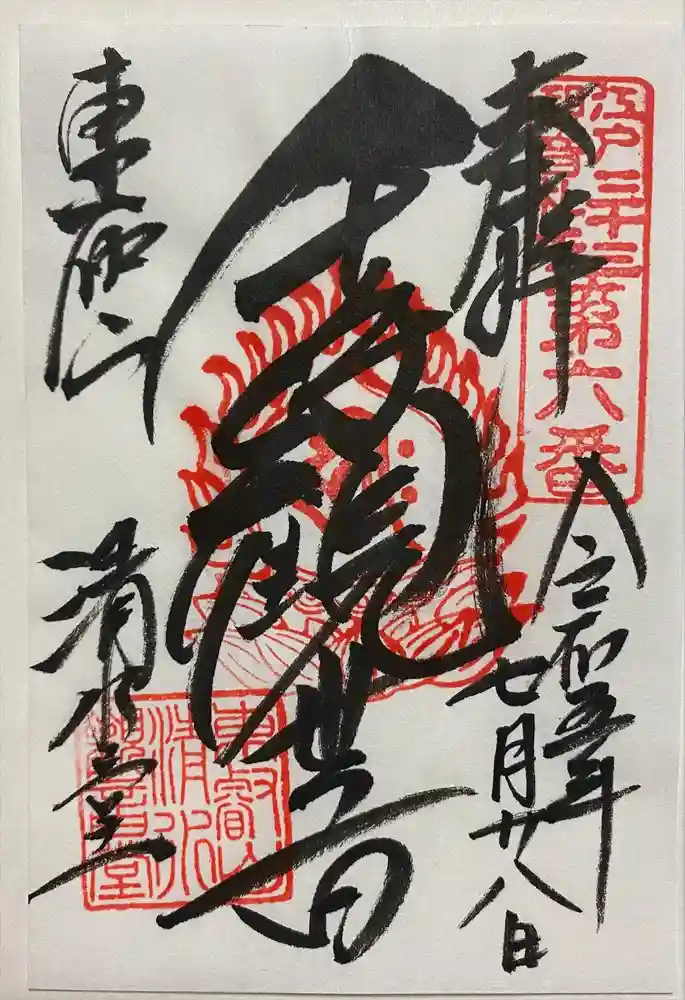 奉拝
江戸三十三
観音札所
第六番
令和五年
七月廿八日
千手観世音
東叡山
清水堂
東叡山
清水
観音堂